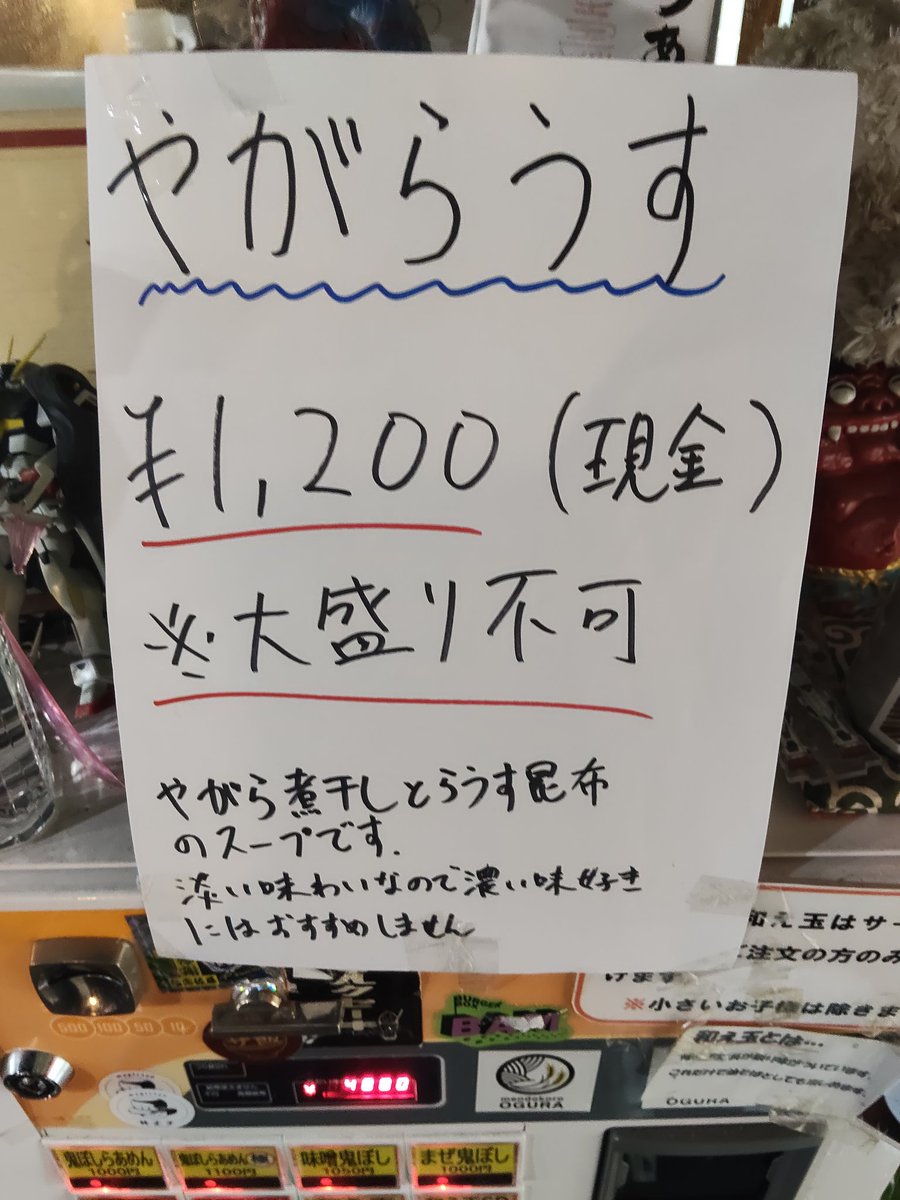 やがらうす
¥1,200 (現金)
※大盛り不可
やがら煮干しとらうす昆布
のスープです.
淡い味わいなので濃い味好き
にはおすすめしません
和え玉はサー
ご注文の方のみ
けます
※小さいお子様は除きま
和え玉とは…
OGURA
500 100 50 10
BURGER
BAM
¥ 4880
mendokoro
OGURA
鬼ぼしらあめん
1000円
鬼ぼしらあめん
1100円
味噌鬼ぼし
1050円
まぜ鬼ぼし
1000円